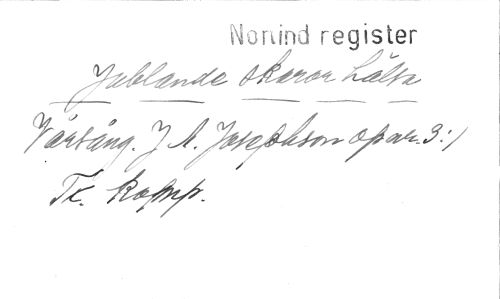 Norlind register
Jublande skaror hälsa
Vårsång. J A. Josephson op ar. 3:/
Tr. komp.